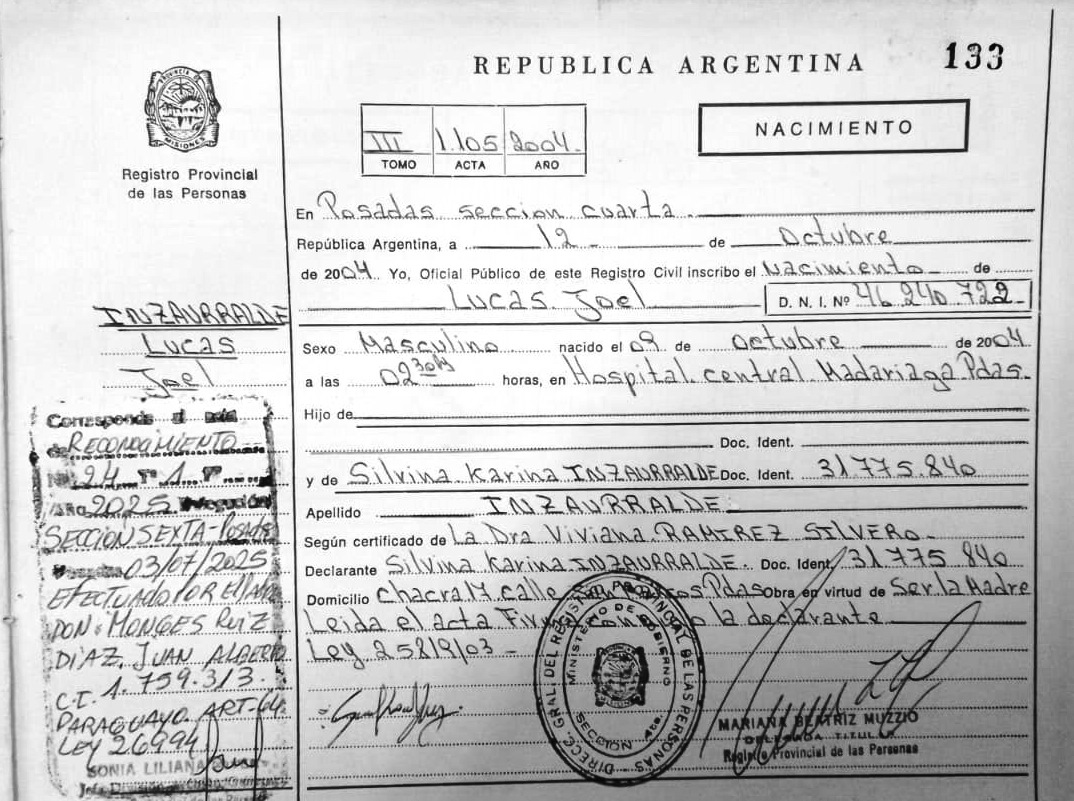 REPUBLICA ARGENTINA 133
PROVINCIA DE MISIONES
Registro Provincial
de las Personas
III 1.105 2004.
TOMO ACTA AÑO
NACIMIENTO
En Posadas seccion cuarta.
República Argentina, a 12 de octubre
de 2004 Yo, Oficial Público de este Registro Civil inscribo el nacimiento de
Lucas Joel D. N. I. Nº 46 240 722
Sexo Masculino nacido el 09 de octubre de 2004
a las 02 30 hs horas, en Hospital central Madariaga Pdas.
Hijo de
Doc. Ident.
y de Silvina Karina INZAURRALDE Doc. Ident. 31775.840
Apellido INZAURRALDE
Según certificado de La Dra Viviana RAMIREZ SILVERO
Declarante Silvina Karina INZAURRALDE. Doc. Ident. 31775 840
Domicilio chacra 17 calle Pdas Obra en virtud de Ser la Madre
Leida el acta la declarante
Ley 25819/03
INZAURRALDE
Lucas
Joel
Corresponde el
de RECONOCIMIENTO
Nº 24 Tº 1 Fº
Año 2025 Delegación
SECCION SEXTA-Posadas
03/07/2025
EFECTUADO POR
DON: MONGES RUIZ
DIAZ, JUAN ALBERTO
C.I. 1.759.313.
PARAGUAYO. ART-64
LEY 26994
SONIA LILIANA
DIRECC. GRAL. DEL REGISTRO PROVINCIAL DE LAS PERSONAS
MINISTERIO DE GOBIERNO
SECCION 4ta.
MARIANA BEATRIZ MUZZIO
DELEGADA TITULAR
Registro Provincial de las Personas